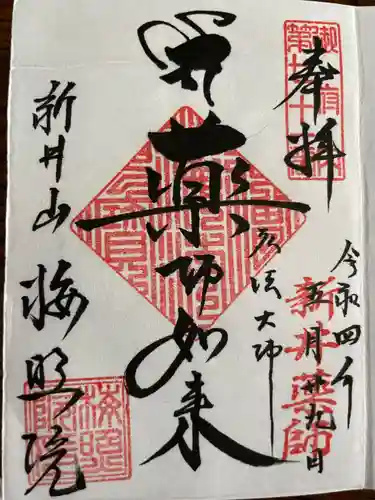 奉拝
令和四年
五月廿九日
新井薬師
弘法大師
藥師如来
新井山
梅照院